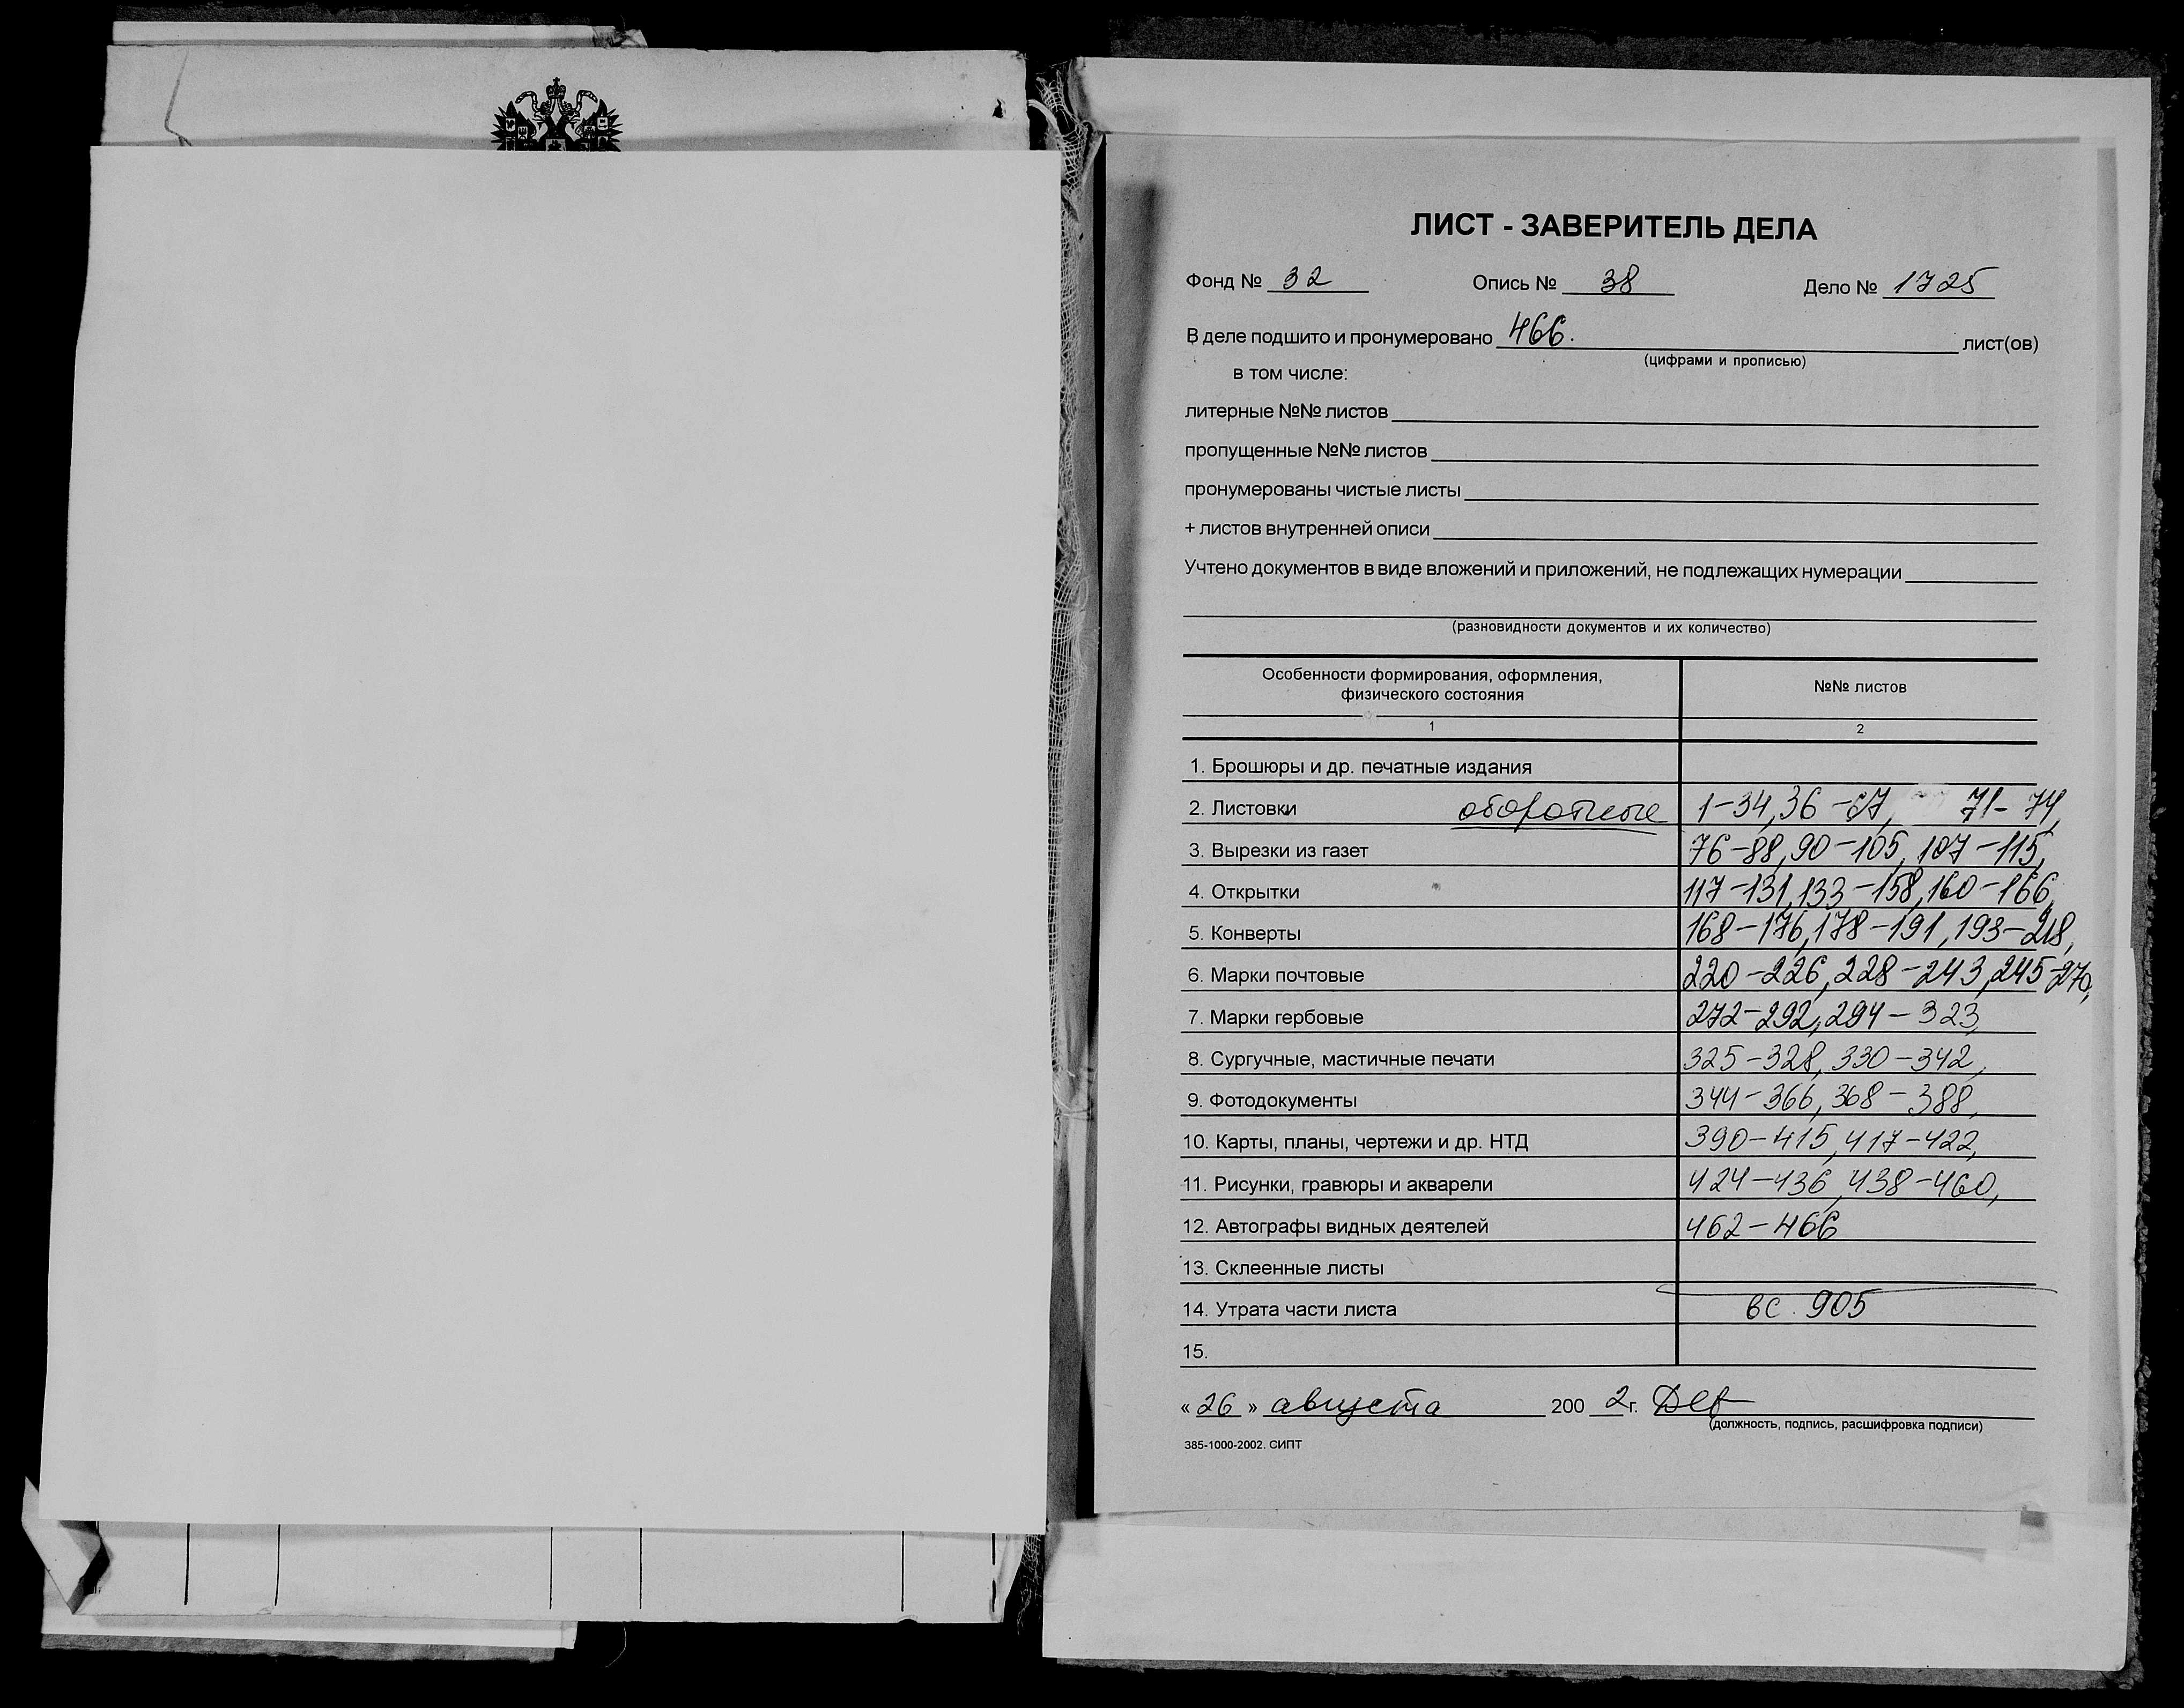 ЛИСТ - ЗАВЕРИТЕЛЬ ДЕЛА
Фонд № 32 Опись № 38 Дело № 1725
В деле подшито и пронумеровано 466. лист(ов)
(цифрами и прописью)
в том числе:
литерные №№ листов
пропущенные №№ листов
пронумерованы чистые листы
+ листов внутренней описи
Учтено документов в виде вложений и приложений, не подлежащих нумерации
(разновидности документов и их количество)
Особенности формирования, оформления, физического состояния №№ листов
1 2
1. Брошюры и др. печатные издания
2. Листовки оборотные 1-34, 36-67, 71-74,
3. Вырезки из газет 76-88, 90-105, 107-115,
4. Открытки 117-131, 133-158, 160-166,
5. Конверты 168-176, 178-191, 193-218,
6. Марки почтовые 220-226, 228-243, 245-270,
7. Марки гербовые 272-292, 294-323,
8. Сургучные, мастичные печати 325-328, 330-342,
9. Фотодокументы 344-366, 368-388,
10. Карты, планы, чертежи и др. НТД 390-415, 417-422,
11. Рисунки, гравюры и акварели 424-436, 438-460,
12. Автографы видных деятелей 462-466
13. Склеенные листы
14. Утрата части листа вс. 905
15.
« 26 » августа 200 2 г.
(должность, подпись, расшифровка подписи)
385-1000-2002. СИПТ